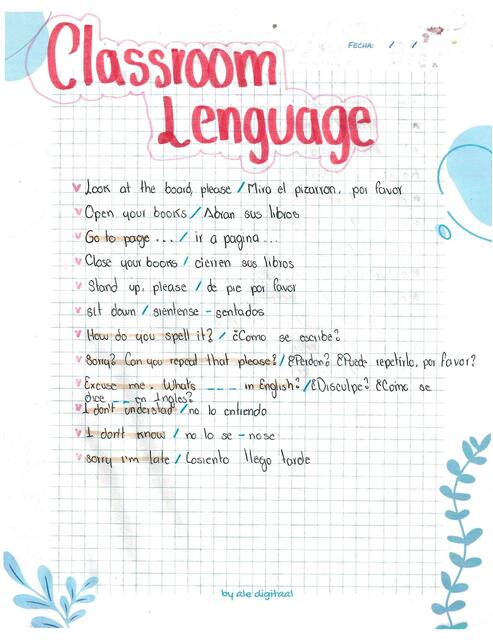 Classroom
FECHA: / /
Lenguage
Look at the board, please / Mira el pizarron, por favor
Open your books / Abran sus libros
Go to page ... / ir a pagina ...
Close your books / cierren sus libros
Stand up, please / de pie por favor
sit down / sientense - sentados
How do you spell it? / ¿Como se escribe?
Sorry? Can you repeat that please? / ¿Perdon? ¿Puede repetirlo, por favor?
Excuse me. Whats _ _ _ in English? / ¿Disculpe? ¿Como se
dice _ _ en Ingles?
I don't understad / no lo entiendo
I don't know / no lo se - nose
sorry I'm late / Losiento llego tarde
by ale digitaal